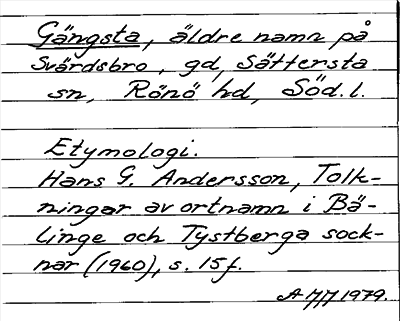 Gängsta, äldre namn på
Svärdsbro, gd, Sättersta
sn, Rönö hd, Söd.l.
Etymologi.
Hans G. Andersson, Tolk-
ningar av ortnamn i Bä-
linge och Tystberga sock-
nar (1960), s. 15f.
1979.